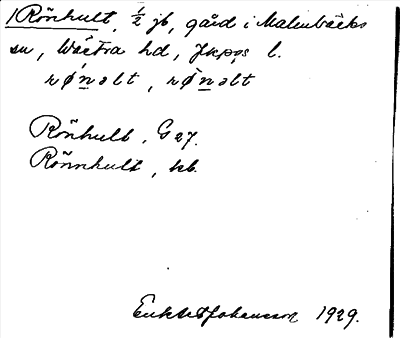 1 Rönhult, 1/2 jb, gård i Malmbäcks
sn, Västra hd, Jkpgs l.
rǿn̲əlt, rø̀n̲əlt
Rönhult, G 27.
Rönnhult, kb.
Johansson 1929.